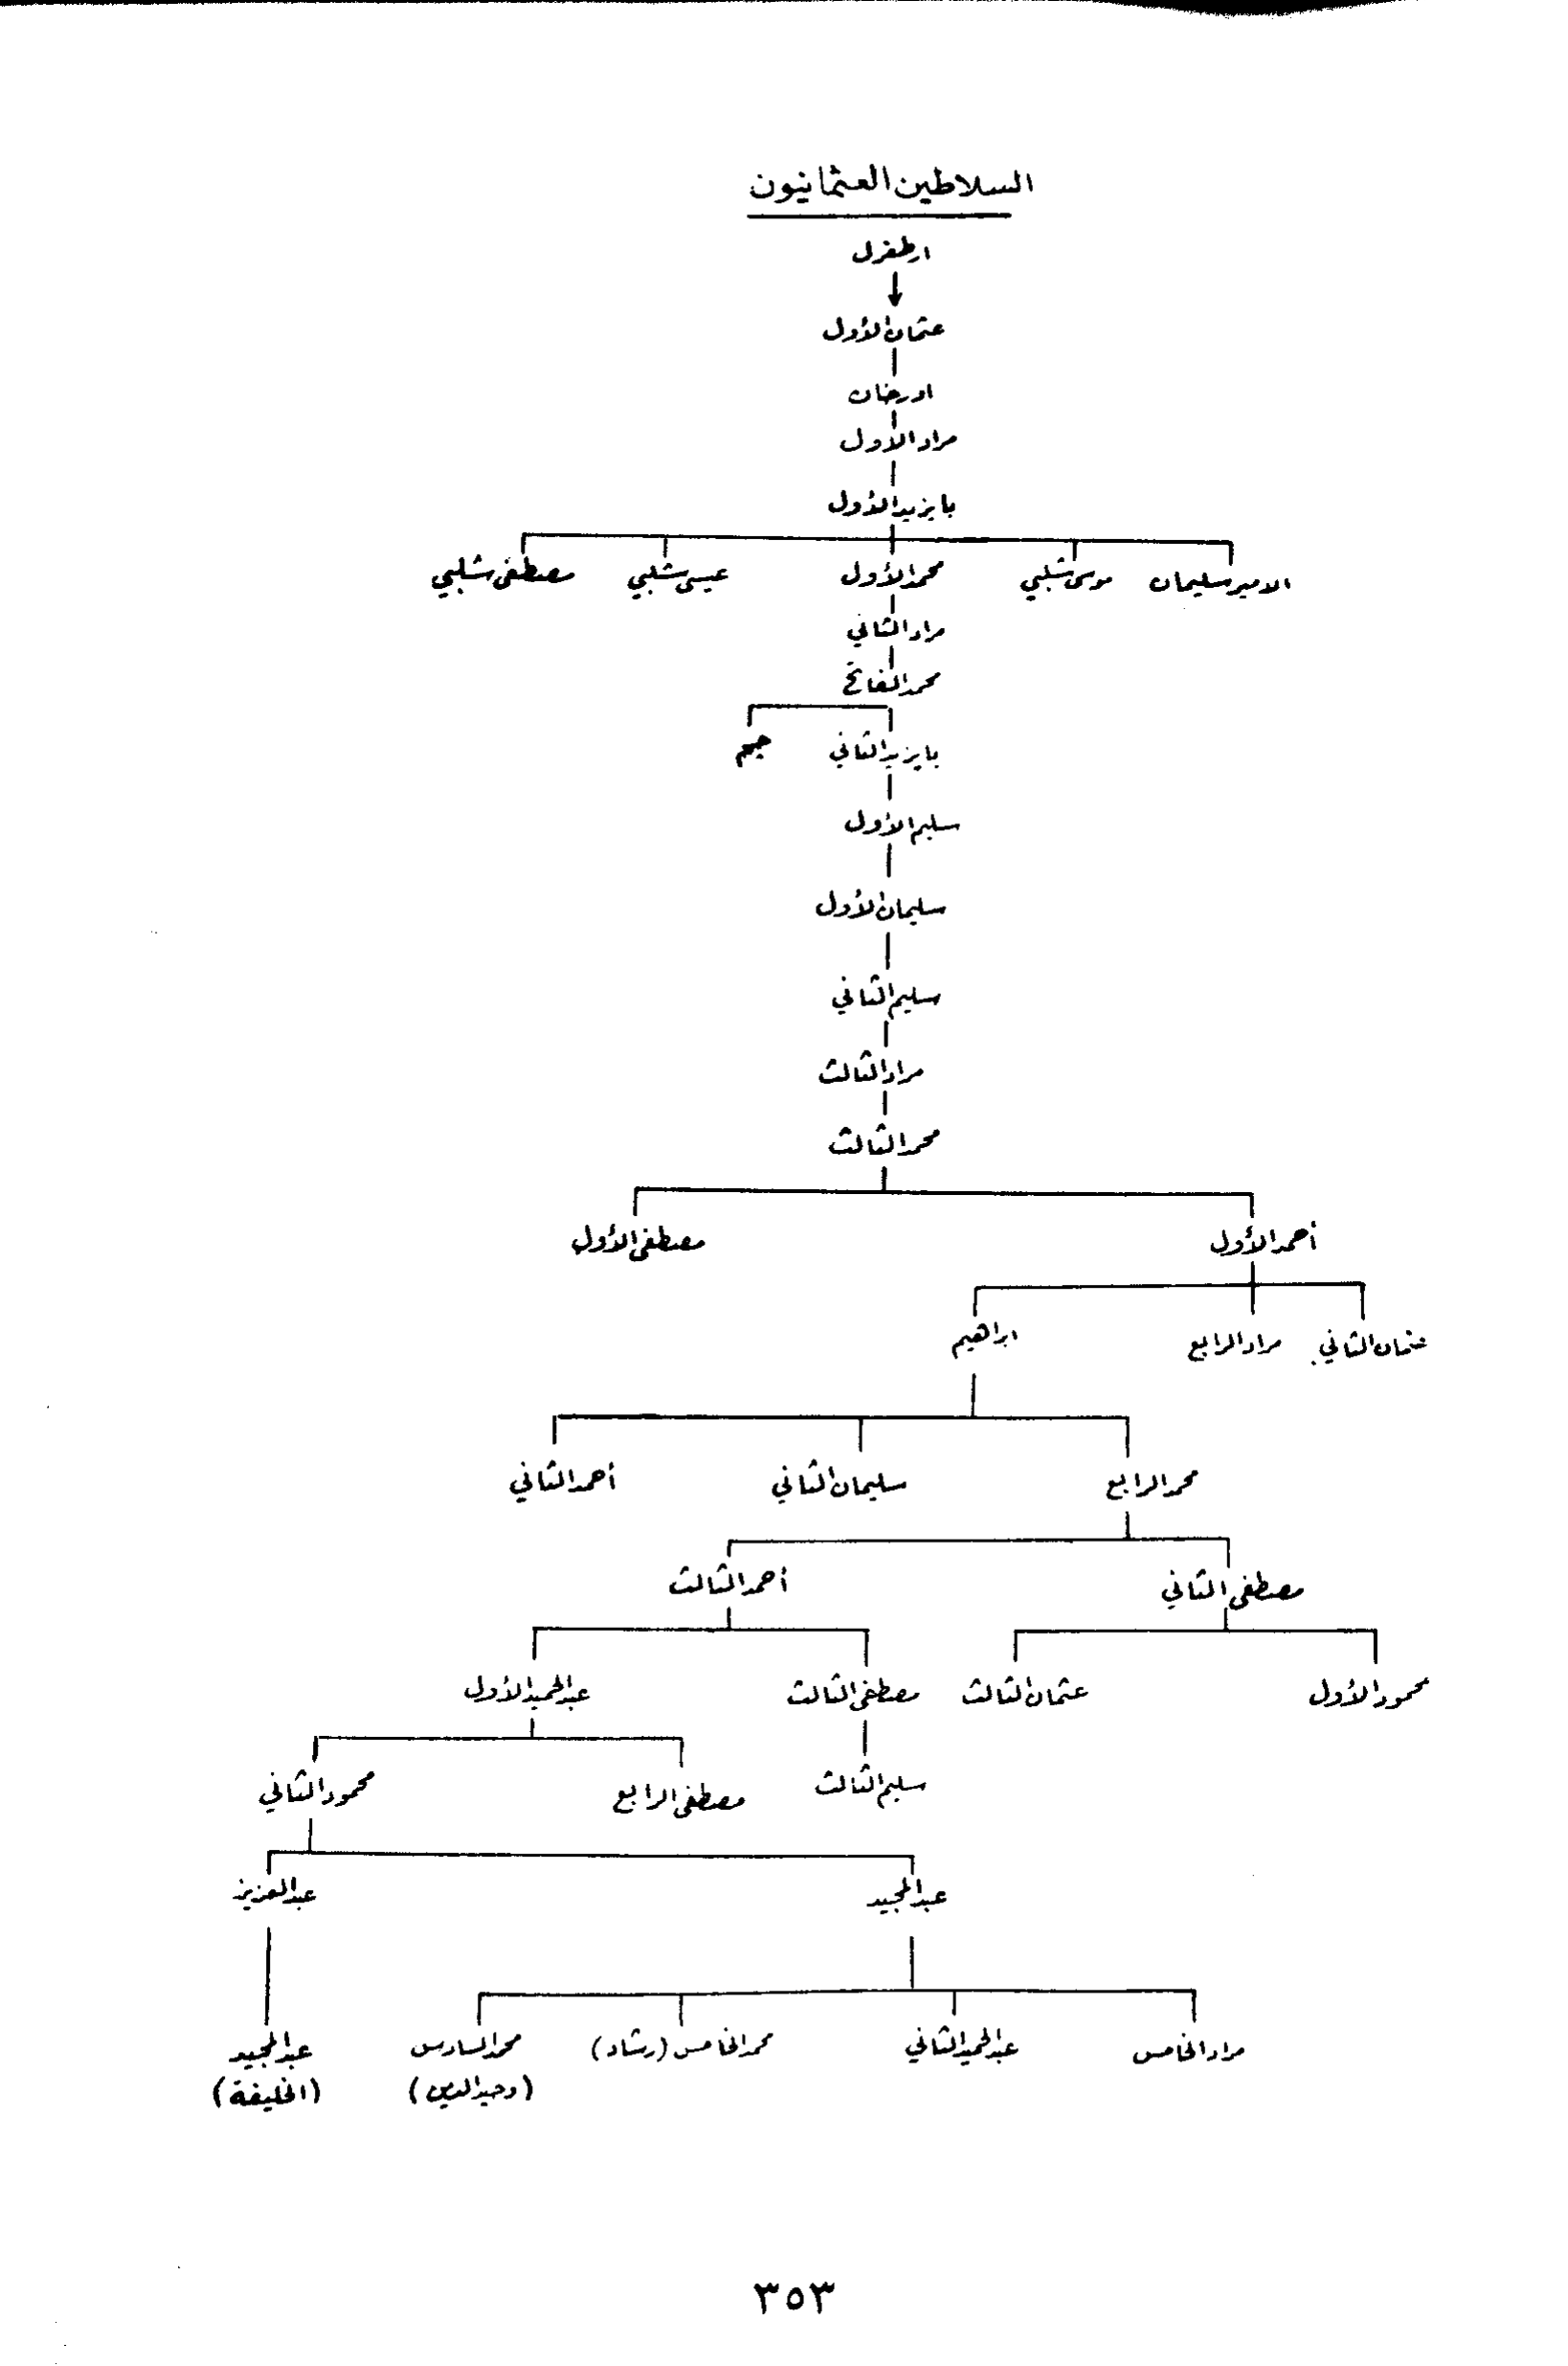 السلاطين العثمانيون
ارطغرل
عثمان الأول
اورخان
مراد الأول
بايزيد الأول
الامير سليمان موسى شلبي محمد الأول عيسى شلبي مصطفى شلبي
مراد الثاني
محمد الفاتح
بايزيد الثاني جم
سليم الأول
سليمان الأول
سليم الثاني
مراد الثالث
محمد الثالث
أحمد الأول مصطفى الأول
عثمان الثاني مراد الرابع ابراهيم
محمد الرابع سليمان الثاني أحمد الثاني
مصطفى الثاني أحمد الثالث
محمود الأول عثمان الثالث مصطفى الثالث عبد الحميد الأول
سليم الثالث مصطفى الرابع محمود الثاني
عبد المجيد عبد العزيز
مراد الخامس عبد الحميد الثاني محمد الخامس (رشاد) محمد السادس عبد المجيد
(وحيد الدين) (الخليفة)
٣٥٣